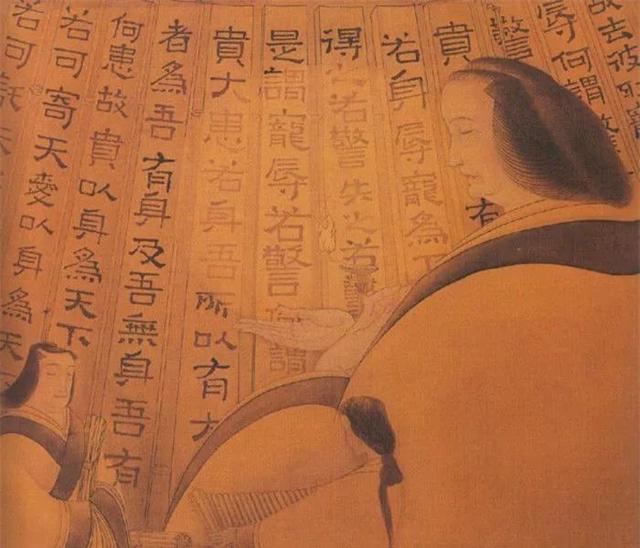 故去彼
辱何謂
驚
有
貴
若身辱寵為下
得之若警失之若警
是謂寵辱若警何謂
貴大患若身吾所以有大
者為吾有身及吾無身吾有
何患故貴以身為天下
若可寄天愛以身為天
若可託天